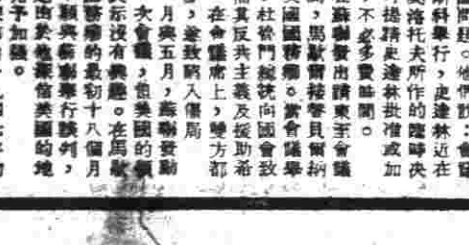 問題。他們說，會議
斯科舉行，史達林近在
莫洛托夫所作的臨時決
將提請史達林批准或加
，不必多費時間。
蘇聯發出請東至會議
，馬歇爾接替貝爾納
美國國務卿。當會議舉
，杜魯門總統向國會致
其反共主義及援助希
在會議席上，雙方都
，遂致陷入僵局
月與五月，蘇聯發動
次會議，但美國的領
示沒有興趣。在馬歇
務卿的最初十八個月
願與蘇聯舉行談判，
出於他深信美國的地
予加強。